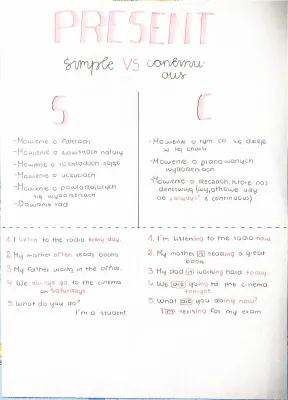 PRESENT
simple VS continu
ous
S
C
- Mówienie o faktach
- Mówienie o zjawiskach natury
- Mówienie o rozkładach zajęć
- Mówienie o uczuciach
- Mówienie o powtarzających się wydarzeniach
- Dawanie rad
- Mówienie o tym co się dzieje w tej chwili
- Mówienie o planowanych wydarzeniach
- Mówienie o rzeczach, które nas denerwują (wyjątkowe użycie "always" z continuous)
1. I listen to the radio every day.
2. My mother often reads books.
3. My father works in the office.
4. We always go to the cinema
on Saturdays.
5. What do you do?
I'm a student.
1. I'm listening to the radio now.
2. My mother is reading a great
book.
3. My dad is working hard today.
4. We are going to the cinema
tonight.
5. What are you doing now?
I'm revising for my exam